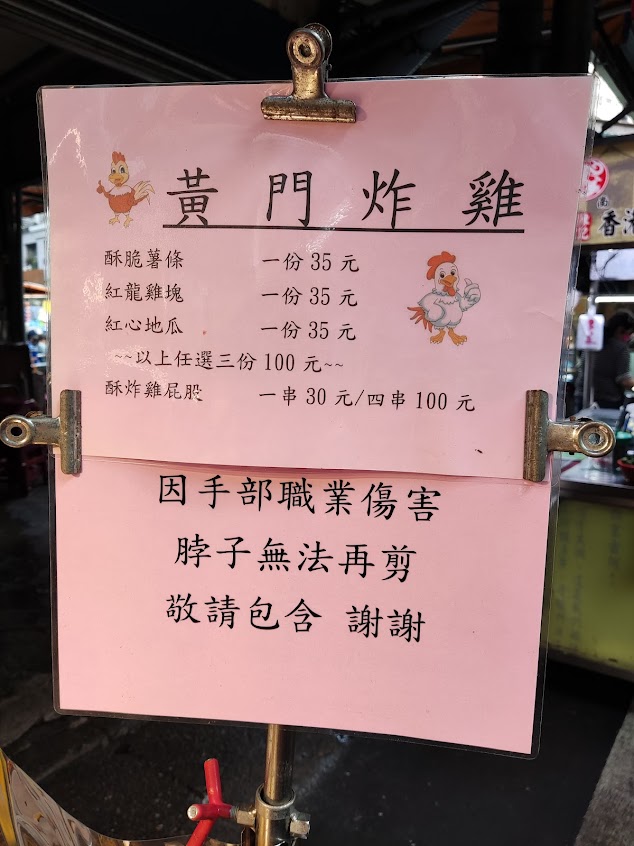 黃門炸雞
酥脆薯條 一份 35 元
紅龍雞塊 一份 35 元
紅心地瓜 一份 35 元
~~以上任選三份 100 元~~
酥炸雞屁股 一串 30 元/四串 100 元
因手部職業傷害
脖子無法再剪
敬請包含 謝謝
香港